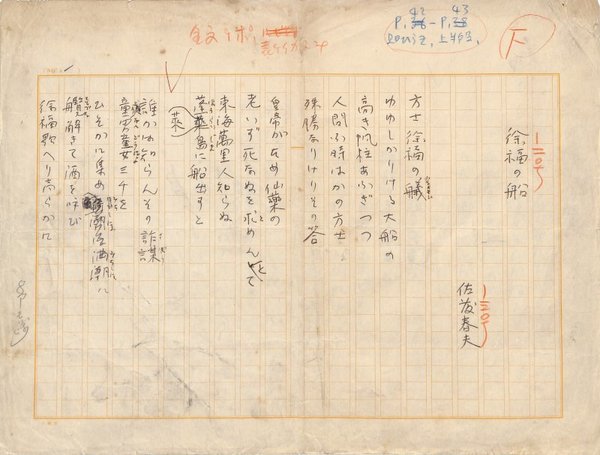 下
42 43
P.38-P.38
一二〇号
徐福の船
一二〇号
佐藤春夫
方士徐福の艤
ゆゆしかりける大船の
高き帆柱あふぎつつ
人問ふ時はかの方士
殊勝なりけりその答
皇帝がため仙薬の
老いず死なぬを求めんとて
東海萬里人知らぬ
蓬莱島に船出すと
誰かは知らんその詐謀
童男童女三千を
ひそかに集め 満 に
纜解きて酒を呼び
徐福歌へり高らかに